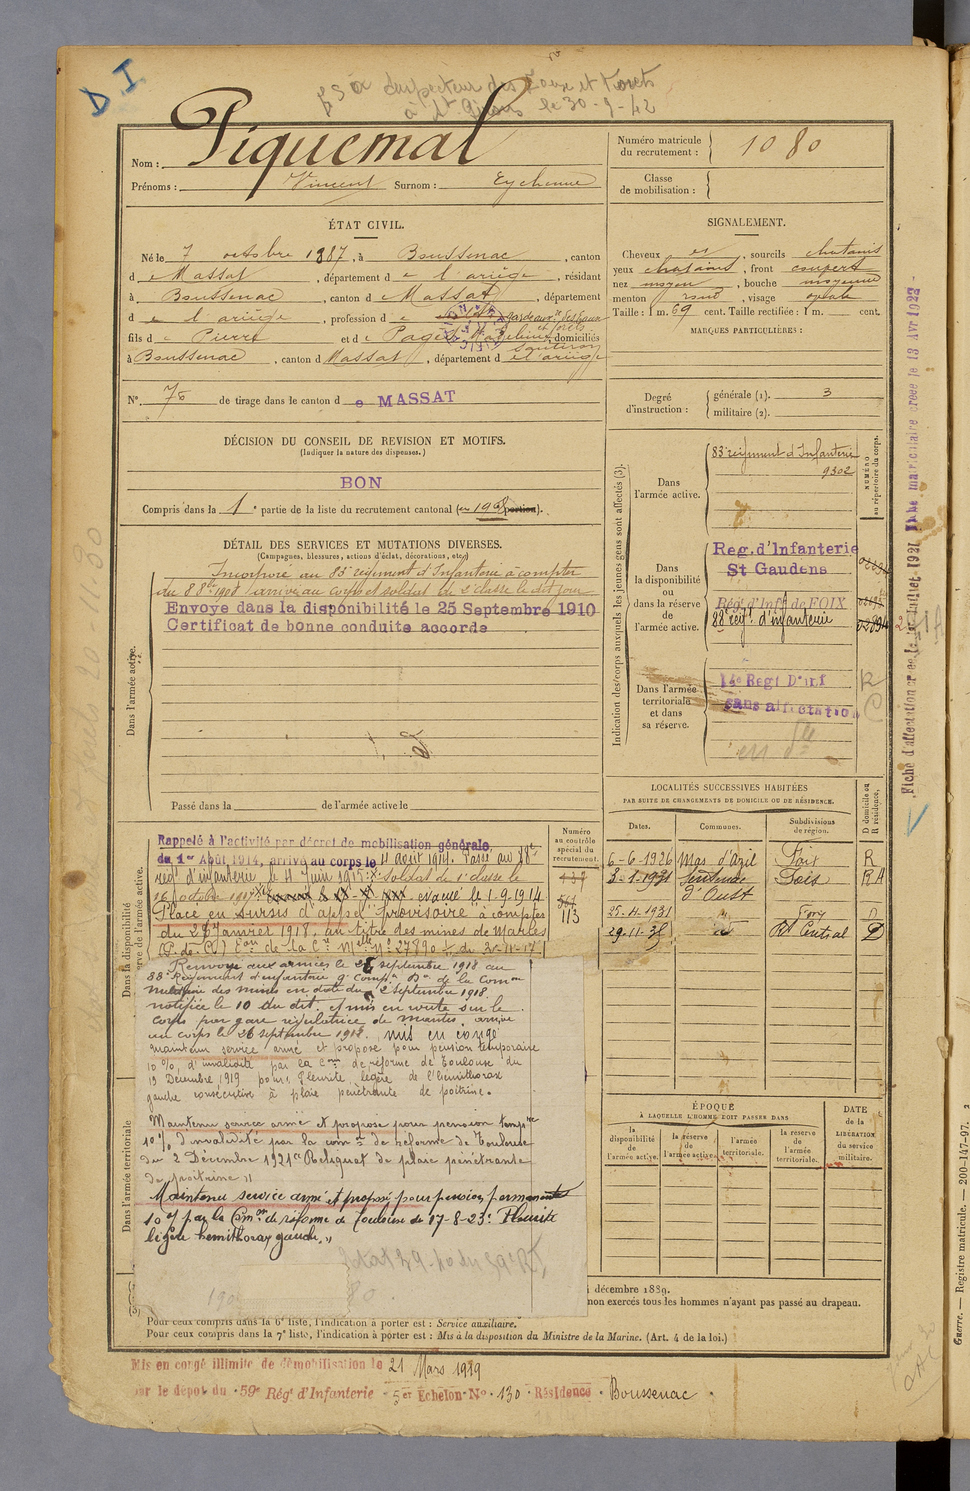 D I
Inspecteur des Eaux et Forêts
à St Girons le 30-9-42
Nom : Piquemal
Prénoms : Vincent Surnom : Eychenne
Numéro matricule du recrutement : 1080
Classe de mobilisation :
ÉTAT CIVIL.
Né le 7 octobre 1887, à Boussenac, canton
de Massat, département de l'ariège, résidant
à Boussenac, canton de Massat, département
de l'ariège, profession de garde aux des Eaux et forêts
fils de Pierre et de Pagès Madeleine, domiciliés
à Boussenac, canton de Massat, département de l'ariège
N° 78 de tirage dans le canton de MASSAT
SIGNALEMENT.
Cheveux et, sourcils chatains
yeux chatains, front couvert
nez moyen, bouche moyenne
menton rond, visage ovale
Taille : 1 m. 69 cent. Taille rectifiée : 1 m. cent.
MARQUES PARTICULIÈRES :
Degré d'instruction : générale (1). 3
militaire (2).
DÉCISION DU CONSEIL DE REVISION ET MOTIFS.
(Indiquer la nature des dispenses.)
BON
Compris dans la 1e partie de la liste du recrutement cantonal (en 1908 portion).
DÉTAIL DES SERVICES ET MUTATIONS DIVERSES.
(Campagnes, blessures, actions d'éclat, décorations, etc.)
Dans l'armée active.
Incorporé au 83e régiment d'Infanterie à compter
du 8 8bre 1908 arrivé au corps et soldat de 2e classe le dit jour
Envoyé dans la disponibilité le 25 Septembre 1910
Certificat de bonne conduite accordé
Passé dans la de l'armée active le
Indication des corps auxquels les jeunes gens sont affectés (3).
NUMÉRO au répertoire du corps.
Dans l'armée active.
83e régiment d'Infanterie
9302
Dans la disponibilité ou dans la réserve de l'armée active.
Reg. d'Infanterie
St Gaudens
Régt d'Inf de FOIX
88e régt. d'infanterie
Dans l'armée territoriale et dans sa réserve.
14e Regt D'inf
sans affectation
Fiche d'affectation créée le Juillet 1921 Fiche matriculaire créée le 13 Avr 1923
LOCALITÉS SUCCESSIVES HABITÉES
PAR SUITE DE CHANGEMENTS DE DOMICILE OU DE RÉSIDENCE.
Dates. Communes. Subdivisions de région. D domicile ou R résidence.
6-6-1926 Mas d'Azil Foix R
3-1-1931 Sentenac d'Oust Foix R
25-11-1931
29-11-38 Rt Central D
Dans la disponibilité ou dans la réserve de l'armée active.
Numéro au contrôle spécial du recrutement.
113
Rappelé à l'activité par décret de mobilisation générale,
du 1er Août 1914, arrivé au corps le 4 août 1914. Passé au 88e
reg. d'infanterie le 4 Juin 1915. Soldat de 1e classe le
16 octobre 1917 évacué le 1-9-1914
Placé en sursis d'appel provisoire à compter
du 28 Janvier 1918, au titre des mines de Marles
Renvoyé aux armées le 26 septembre 1918 au
88e Régiment d'infanterie
militaire des mines en date du 2 septembre 1918.
notifiée le 10 du dit, et mis en route sur le
corps par gare régulatrice de mantes. arrivé
au corps le 26 septembre 1918. mis en congé
maintenu service armé et proposé pour pension temporaire
10 %, d'invalidité par la Con de réforme de Toulouse du
19 Décembre 1919 pour, Pleurite légère de l'hémithorax
gauche consécutive à plaie pénétrante de poitrine.
Maintenu service armé et proposé pour pension tempre
10 % d'invalidité par la comon de réforme de Toulouse
du 2 Décembre 1921 "Reliquat de plaie pénétrante
de poitrine"
Maintenu service armé et proposé pour pension permanente
10 % par la Comon de réforme de Toulouse du 17-8-23 : Pleurite
légère hémithorax gauche."
Dans l'armée territoriale
ÉPOQUE
À LAQUELLE L'HOMME DOIT PASSER DANS
la disponibilité de l'armée active.
la réserve de l'armée active.
l'armée territoriale.
la réserve de l'armée territoriale.
DATE de la LIBÉRATION du service militaire.
décembre 1889.
non exercés tous les hommes n'ayant pas passé au drapeau.
Pour ceux compris dans la 6e liste, l'indication à porter est : Service auxiliaire.
Pour ceux compris dans la 7e liste, l'indication à porter est : Mis à la disposition du Ministre de la Marine. (Art. 4 de la loi.)
Mis en congé illimité de démobilisation le 21 Mars 1919
par le dépot du 59e Régt d'Infanterie 5er Echelon N° 130 Résidence Boussenac
Guerre. — Registre matricule. — 200-147-07.